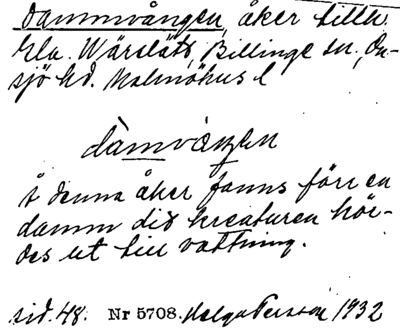 Dammvången, åker tillh.
Lla. Wärslätt, Billinge sn. On-
sjö hd. Malmöhus l
dàmvàŋen
Å denna åker fanns förr en
damm dit kreaturen hör-
des ut till vattning.
sid. 48. Nr 5708. Helge Persson 1932